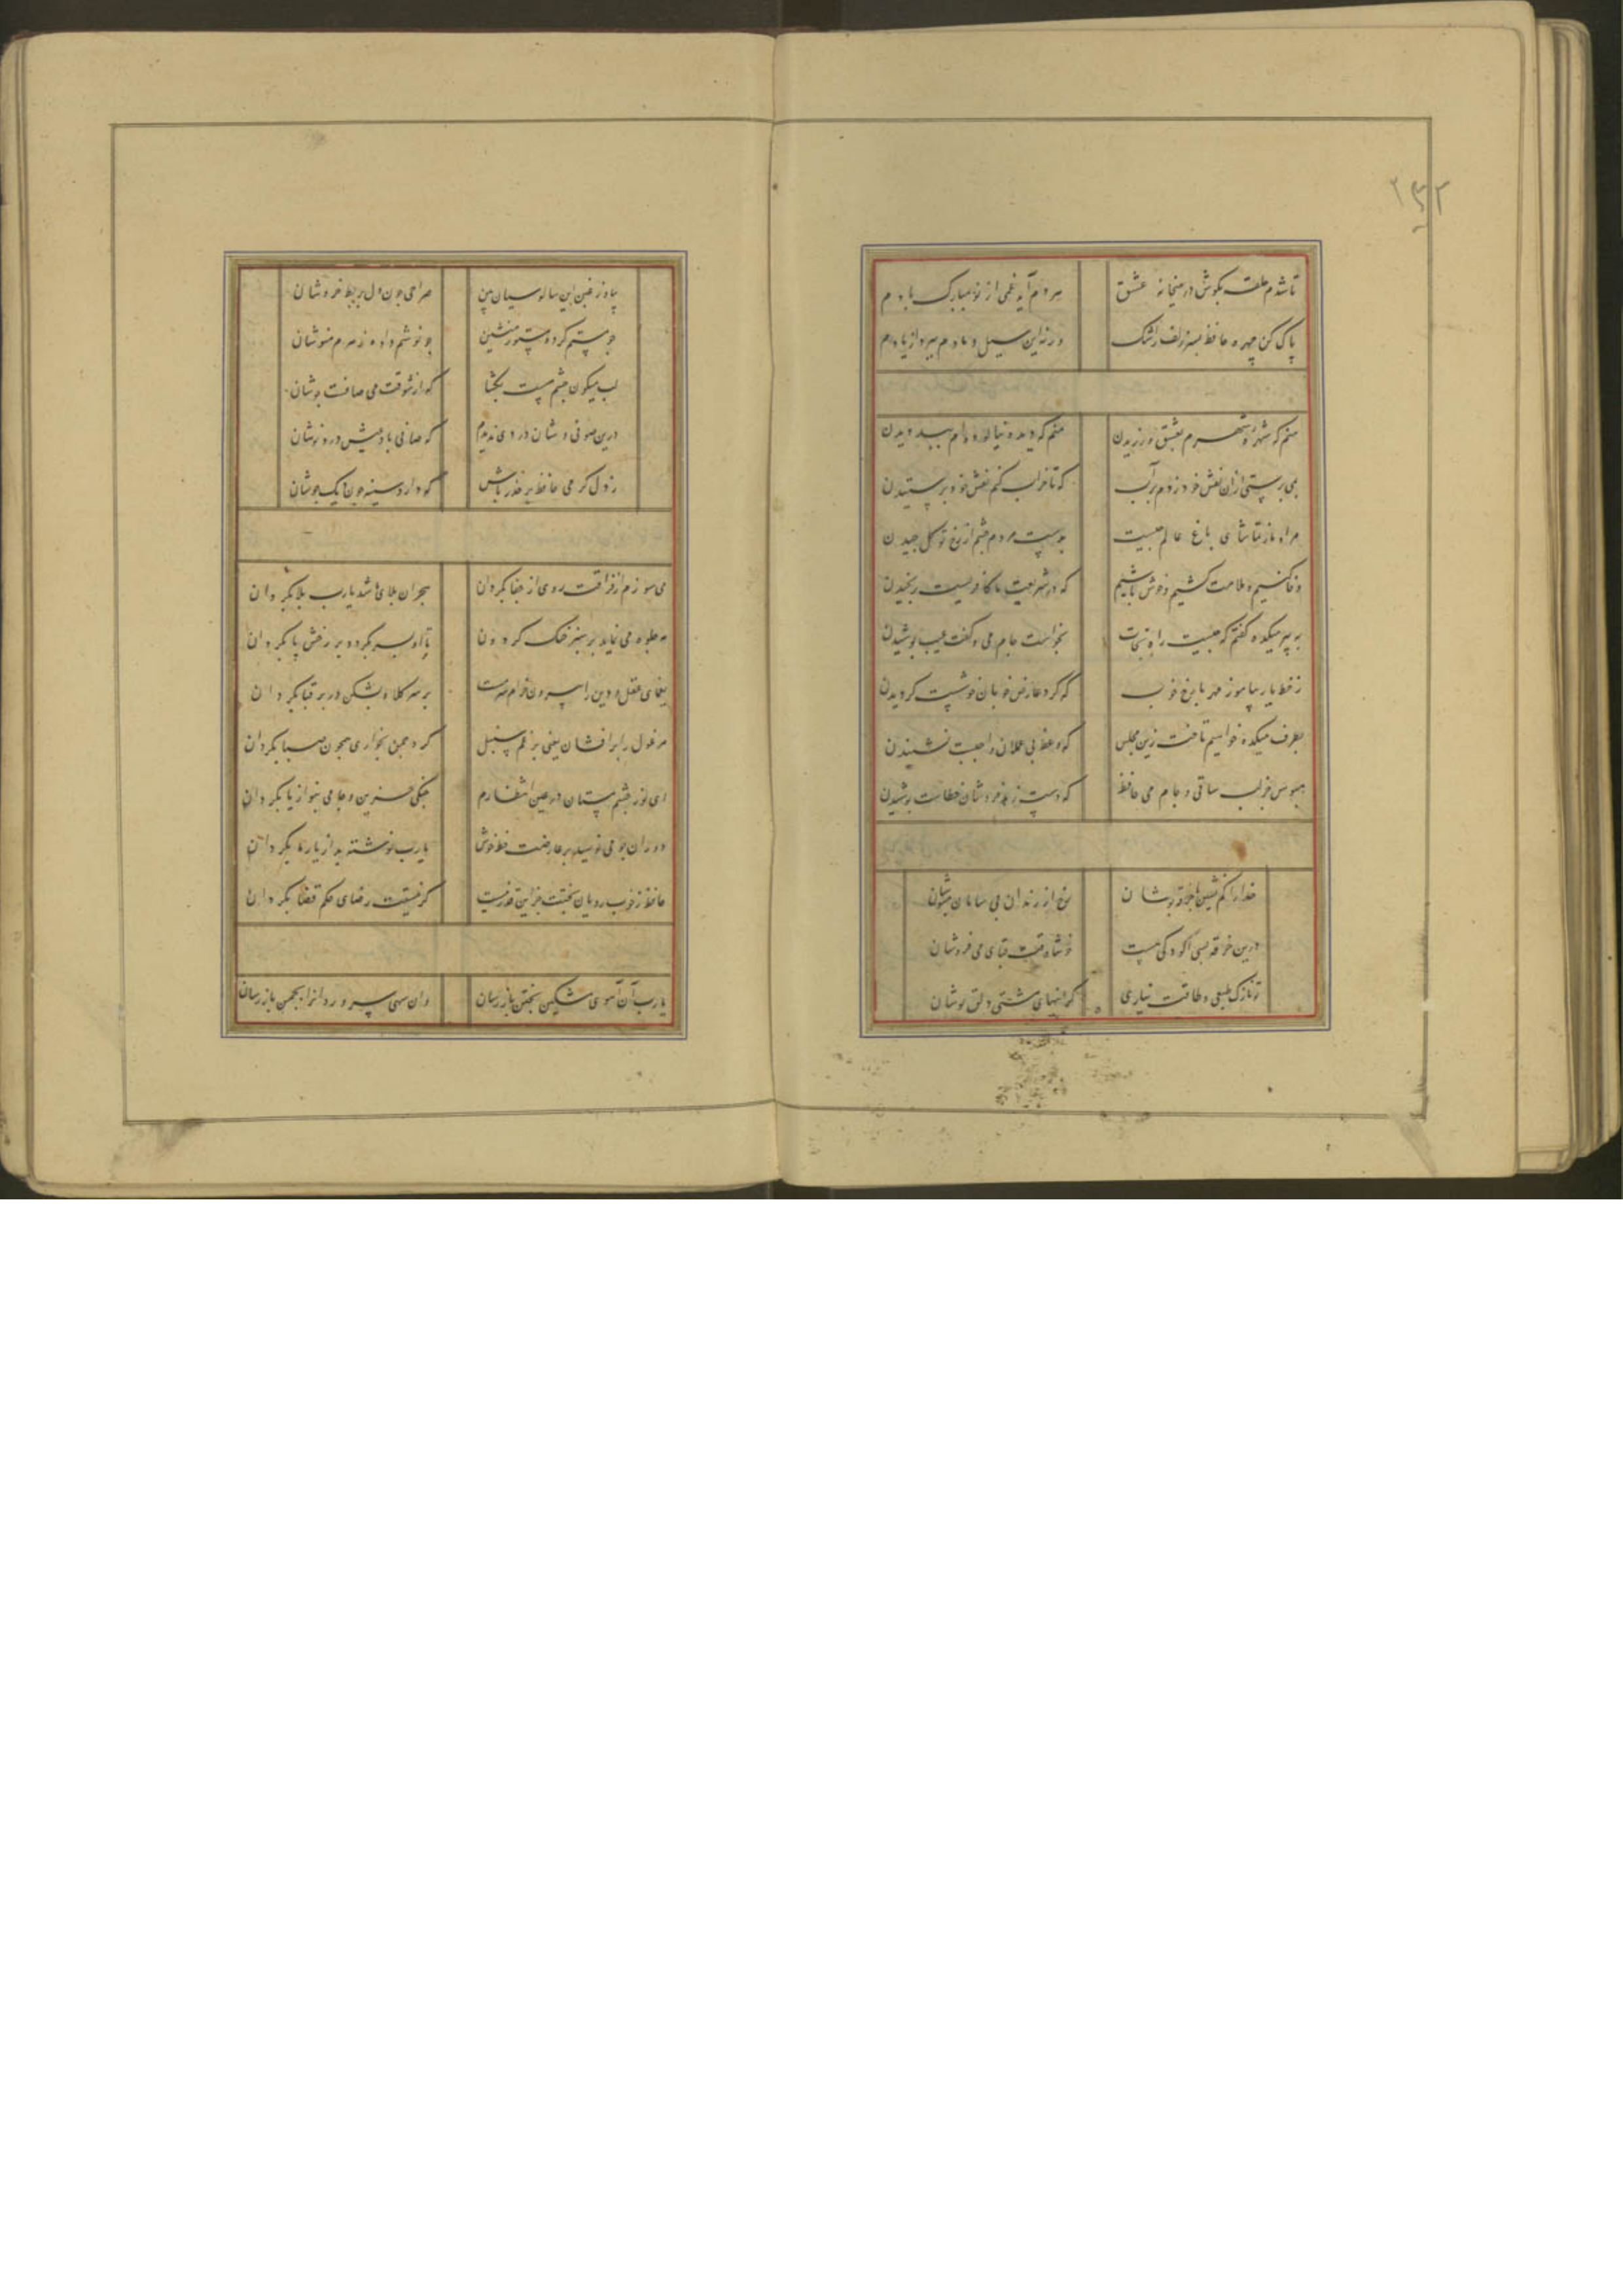 ۲۳۲
تا شدم حلقه بکوش در میخانه عشق هر دم آید غمی از نو بمبارک بادم
پاک کن چهره حافظ بسر زلف ز اشک ورنه این سیل دمادم ببرد از یادم
منم که شهره شهرم بعشق ورزیدن منم که دیده نیالوده ام ببد دیدن
بمی پرستی ازان نقش خود زدم بر آب که تا خراب کنم نقش خود پرستیدن
مراد ما ز تماشای باغ عالم چیست بدست مردم چشم از رخ تو کل چیدن
وفا کنیم و ملامت کشیم و خوش باشیم که در شریعت ما کافریست رنجیدن
به پیر میکده کفتم که چیست راه نجات بخواست جام می و کفت عیب پوشیدن
ز خط یار بیاموز مهر با رخ خوب که کرد عارض خوبان خوشست کردیدن
بطرف میکده خواهیم تاخت زین مجلس که وعظ بی عملان واجبست نشنیدن
مبوس جز لب ساقی و جام می حافظ که دست زهد فروشان خطاست بوسیدن
خدا را کم نشین با خرقه پوشان رخ از رندان بی سامان مپوشان
درین خرقه بسی آلودکی هست خوشا وقت قبای می فروشان
تو نازک طبعی و طاقت نیاری کرانیهای مشتی دلق پوشان
بیا وز غبن این سالوسیان بین صراحی خون دل بربط خروشان
چو مستم کرده مستور منشین چو نوشم داده زهرم منوشان
لب میکون چشم مست بکشا که از شوقت می صافست جوشان
درین صوفی وشان دردی ندیدم که صافی باد عیش دردنوشان
ز دل کرمی حافظ بر حذر باش که دارد سینه چون دیک جوشان
می سوزم از فراقت روی از جفا بکردان هجران بلای ما شد یارب بلا بکردان
مه جلوه می نماید بر سبز خنک کردون تا او بسر بکردد بر رخش پا بکردان
یغمای عقل و دین را بیرون خرام سرمست بر سر کلاه بشکن در بر قبا بکردان
مرغول را برافشان یعنی برغم سنبل کرد چمن بخواری همچون صبا بکردان
ای نور چشم مستان در عین انتظارم چنکی حزین و جامی بنواز یا بکردان
دوران چو می نویسد بر عارضت خط خوش یارب نوشته بد از یار ما بکردان
حافظ ز خوب رویان بختت جز این قدر نیست کر نیستت رضای حکم قضا بکردان
یارب آن آهوی مشکین بختن باز رسان وان سهی سرو روانرا بچمن باز رسان